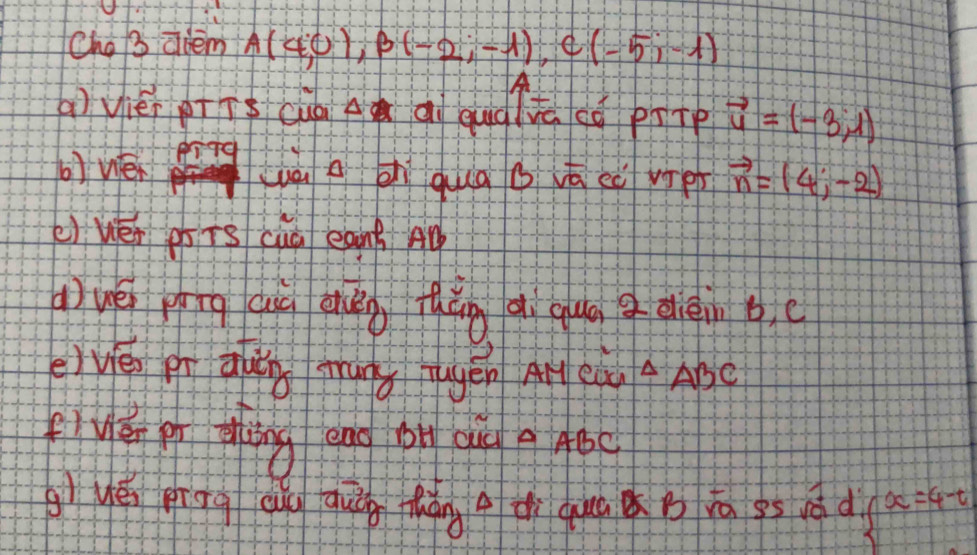 Cho 3 điểm A(4;0), B(-2;-1), C(-5;-1)
a) Viết PTTS của Δ đi qua A và có PTTP u⃗ = (-3;1)
b) Viết PTTQ của Δ đi qua B và có VTPT n⃗ = (4;-2)
c) Viết PTTS của cạnh AB
d) Viết PTTQ của đường thẳng đi qua 2 điểm B, C
e) Viết PT đường trung tuyến AM của Δ ABC
f) Viết PT đường cao BH của Δ ABC
g) Viết PTTQ của đường thẳng Δ đi qua B và ss với d: { x = 4 - t